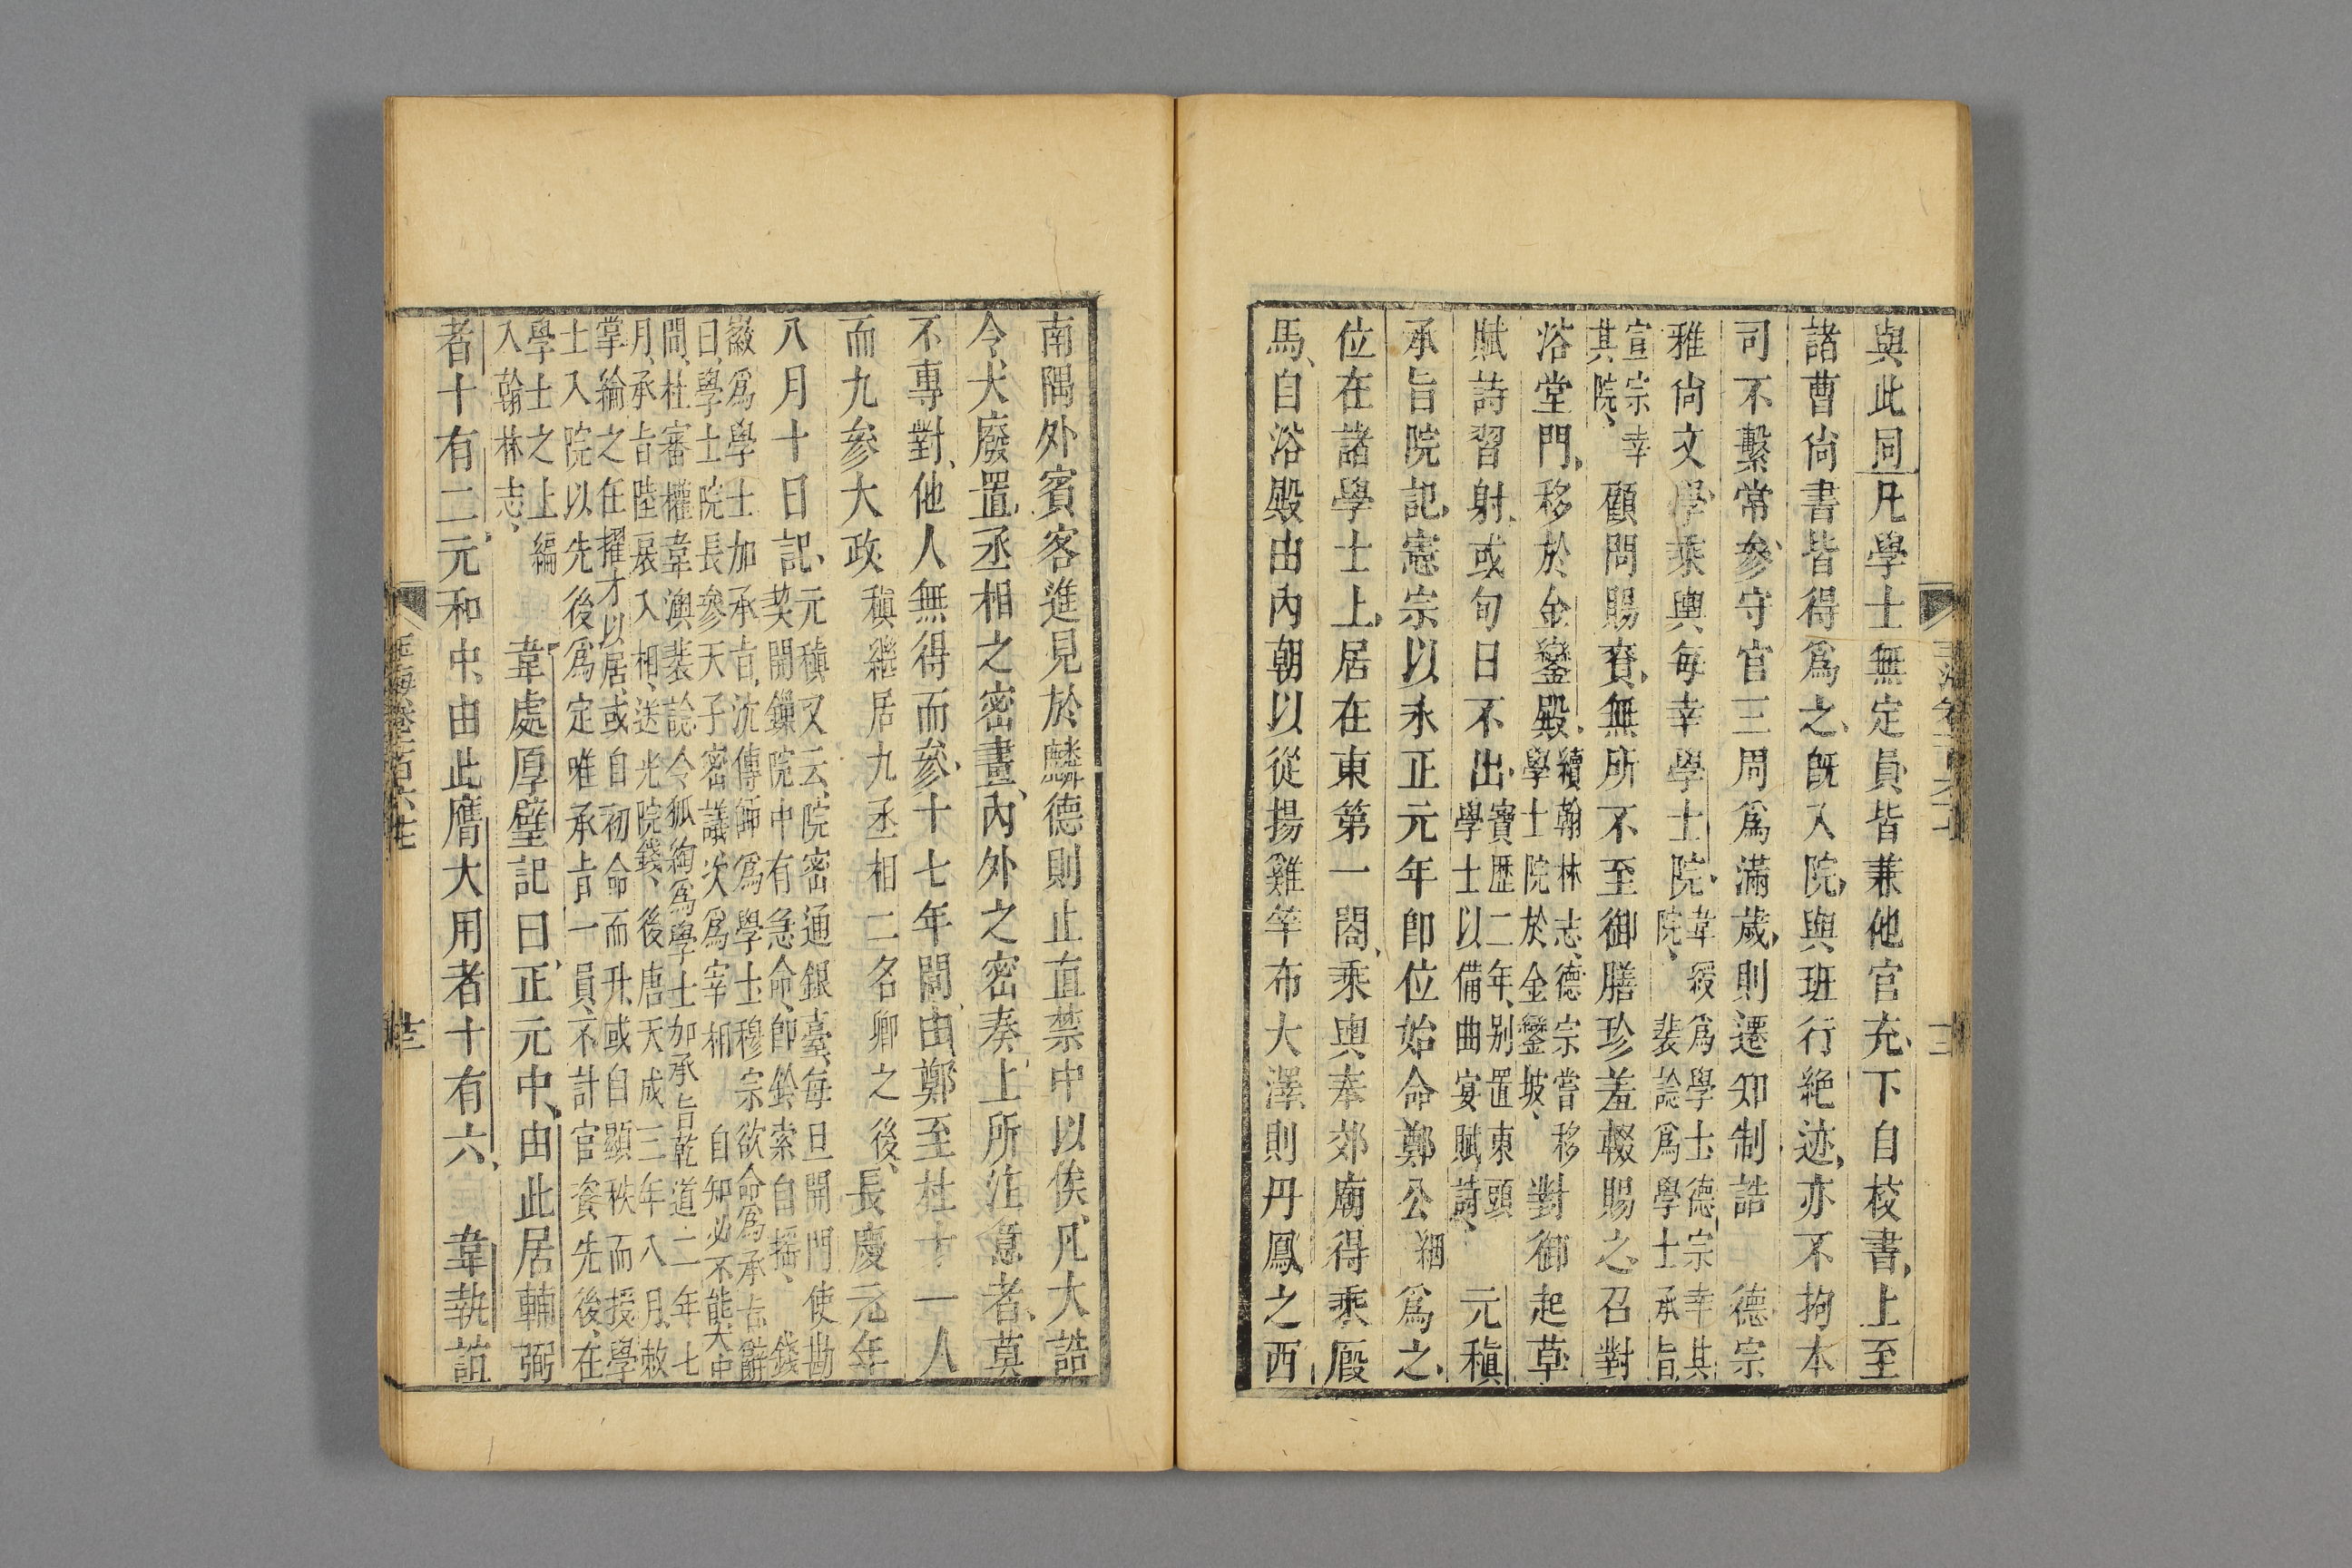 與此同凡學士無定員皆兼他官充、下自校書、上至
諸曹尚書皆得爲之、旣入院、與班行絶迹、亦不拘本
司不繫常參、守官三周爲滿歲、則遷知制誥　德宗
雅尚文學、乘輿每幸學士院、韋綬爲學士德宗幸其院、裴諗爲學士承旨
宣宗幸其院、顧問賜賚、無所不至御膳珍羞輟賜之、召對
浴堂門、移於金鑾殿、續翰林志、德宗嘗移學士院於金鑾坡、對御起草
賦詩習射、或旬日不出、寶歷二年、別置東頭學士以備曲宴賦詩、　元稹
承旨院記、憲宗以永正元年卽位始命鄭公絪爲之、
位在諸學士上、居在東第一閤、乘輿奉郊廟得乘廄
馬、自浴殿由內朝以從揚雞竿布大澤、則丹鳳之西
南隅外賓客進見於麟德則止直禁中以俟、凡大誥
令、大廢置、丞相之密畫、內外之密奏、上所注意者、莫
不專對、他人無得而參、十七年閒、由鄭至杜十一人
而九參大政、稹繼居九丞相二名卿之後、長慶元年
八月十日記、元稹又云、院密通銀臺、每旦開門使勘契開鏁院中有急命、卽鈴索自搖、錢
徽爲學士加承旨、沈傳師爲學士穆宗欲命爲承旨辭
曰、學士院長參天子密議、次爲宰相自知必不能、大中
間、杜審權韋澳裴諗令狐綯爲學士加承旨乾道二年七
月、承旨陸扆入相、送光院錢、後唐天成三年八月、敕
掌綸之任擢才以居、或自初命而升、或自顯秩而授學
士入院以先後爲定唯承旨一員、不計官資先後、在
學士之上編
入翰林志、　韋處厚壁記曰、正元中、由此居輔弼
者十有二、元和中、由此膺大用者十有六、　韋執誼